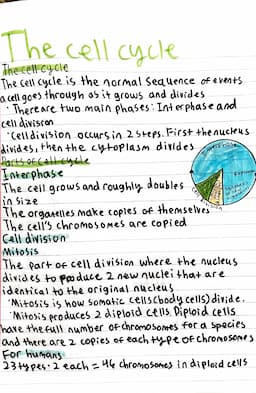 The cell cycle
The cell cycle
The cell cycle is the normal sequence of events
a cell goes through as it grows and divides
· There are two main phases: Interphase and
cell divison
· Cell division occurs in 2 steps. First the nucleus
divides, then the cytoplasm divides
Parts of cell cycle
Interphase
The cell grows and roughly doubles
in size
The organelles make copies of themselves
The cell's chromosomes are copied
Cell division
Mitosis
The part of cell division where the nucleus
divides to produce 2 new nuclei that are
identical to the original nucleus
· Mitosis is how somatic cells (body cells) divide.
· Mitosis produces 2 diploid cells. Diploid cells
have the full number of chromosomes for a species
and there are 2 copies of each type of chromosomes
For humans
23 types · 2 each = 46 chromosomes in diploid cells